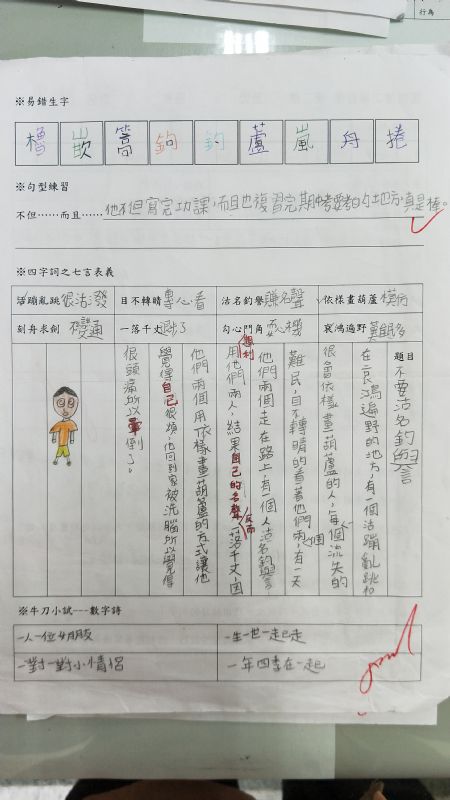 行為
※易錯生字
櫓 嵌 篙 鉤 釣 蘆 嵐 舟 捲
※句型練習
不但……而且……他不但寫完功課,而且也複習完期中考要考的地方,真是棒。
※四字詞之七言表義
活蹦亂跳很活潑 目不轉睛專心看 沽名釣譽賺名聲 依樣畫葫蘆模仿
刻舟求劍不變通 一落千丈退步了 勾心鬥角耍心機 哀鴻遍野難民多
題目 不要沽名釣譽
在哀鴻遍野的地方,有一個活蹦亂跳和
很會依樣畫葫蘆的人,每個流失的
難民,目不轉睛的看著他們兩個,有一天
他們兩個走在路上,有一個人沽名釣譽
想利用他們兩人,結果自己的名聲反而一落千丈,因
他們兩個用依樣畫葫蘆的方式讓他
覺得自己很煩,他回到家被洗腦所以覺得
很頭痛所以暈倒了。
※牛刀小試---數字詩
一人一位好朋友
一生一世一起走
一對一對小情侶
一年四季在一起